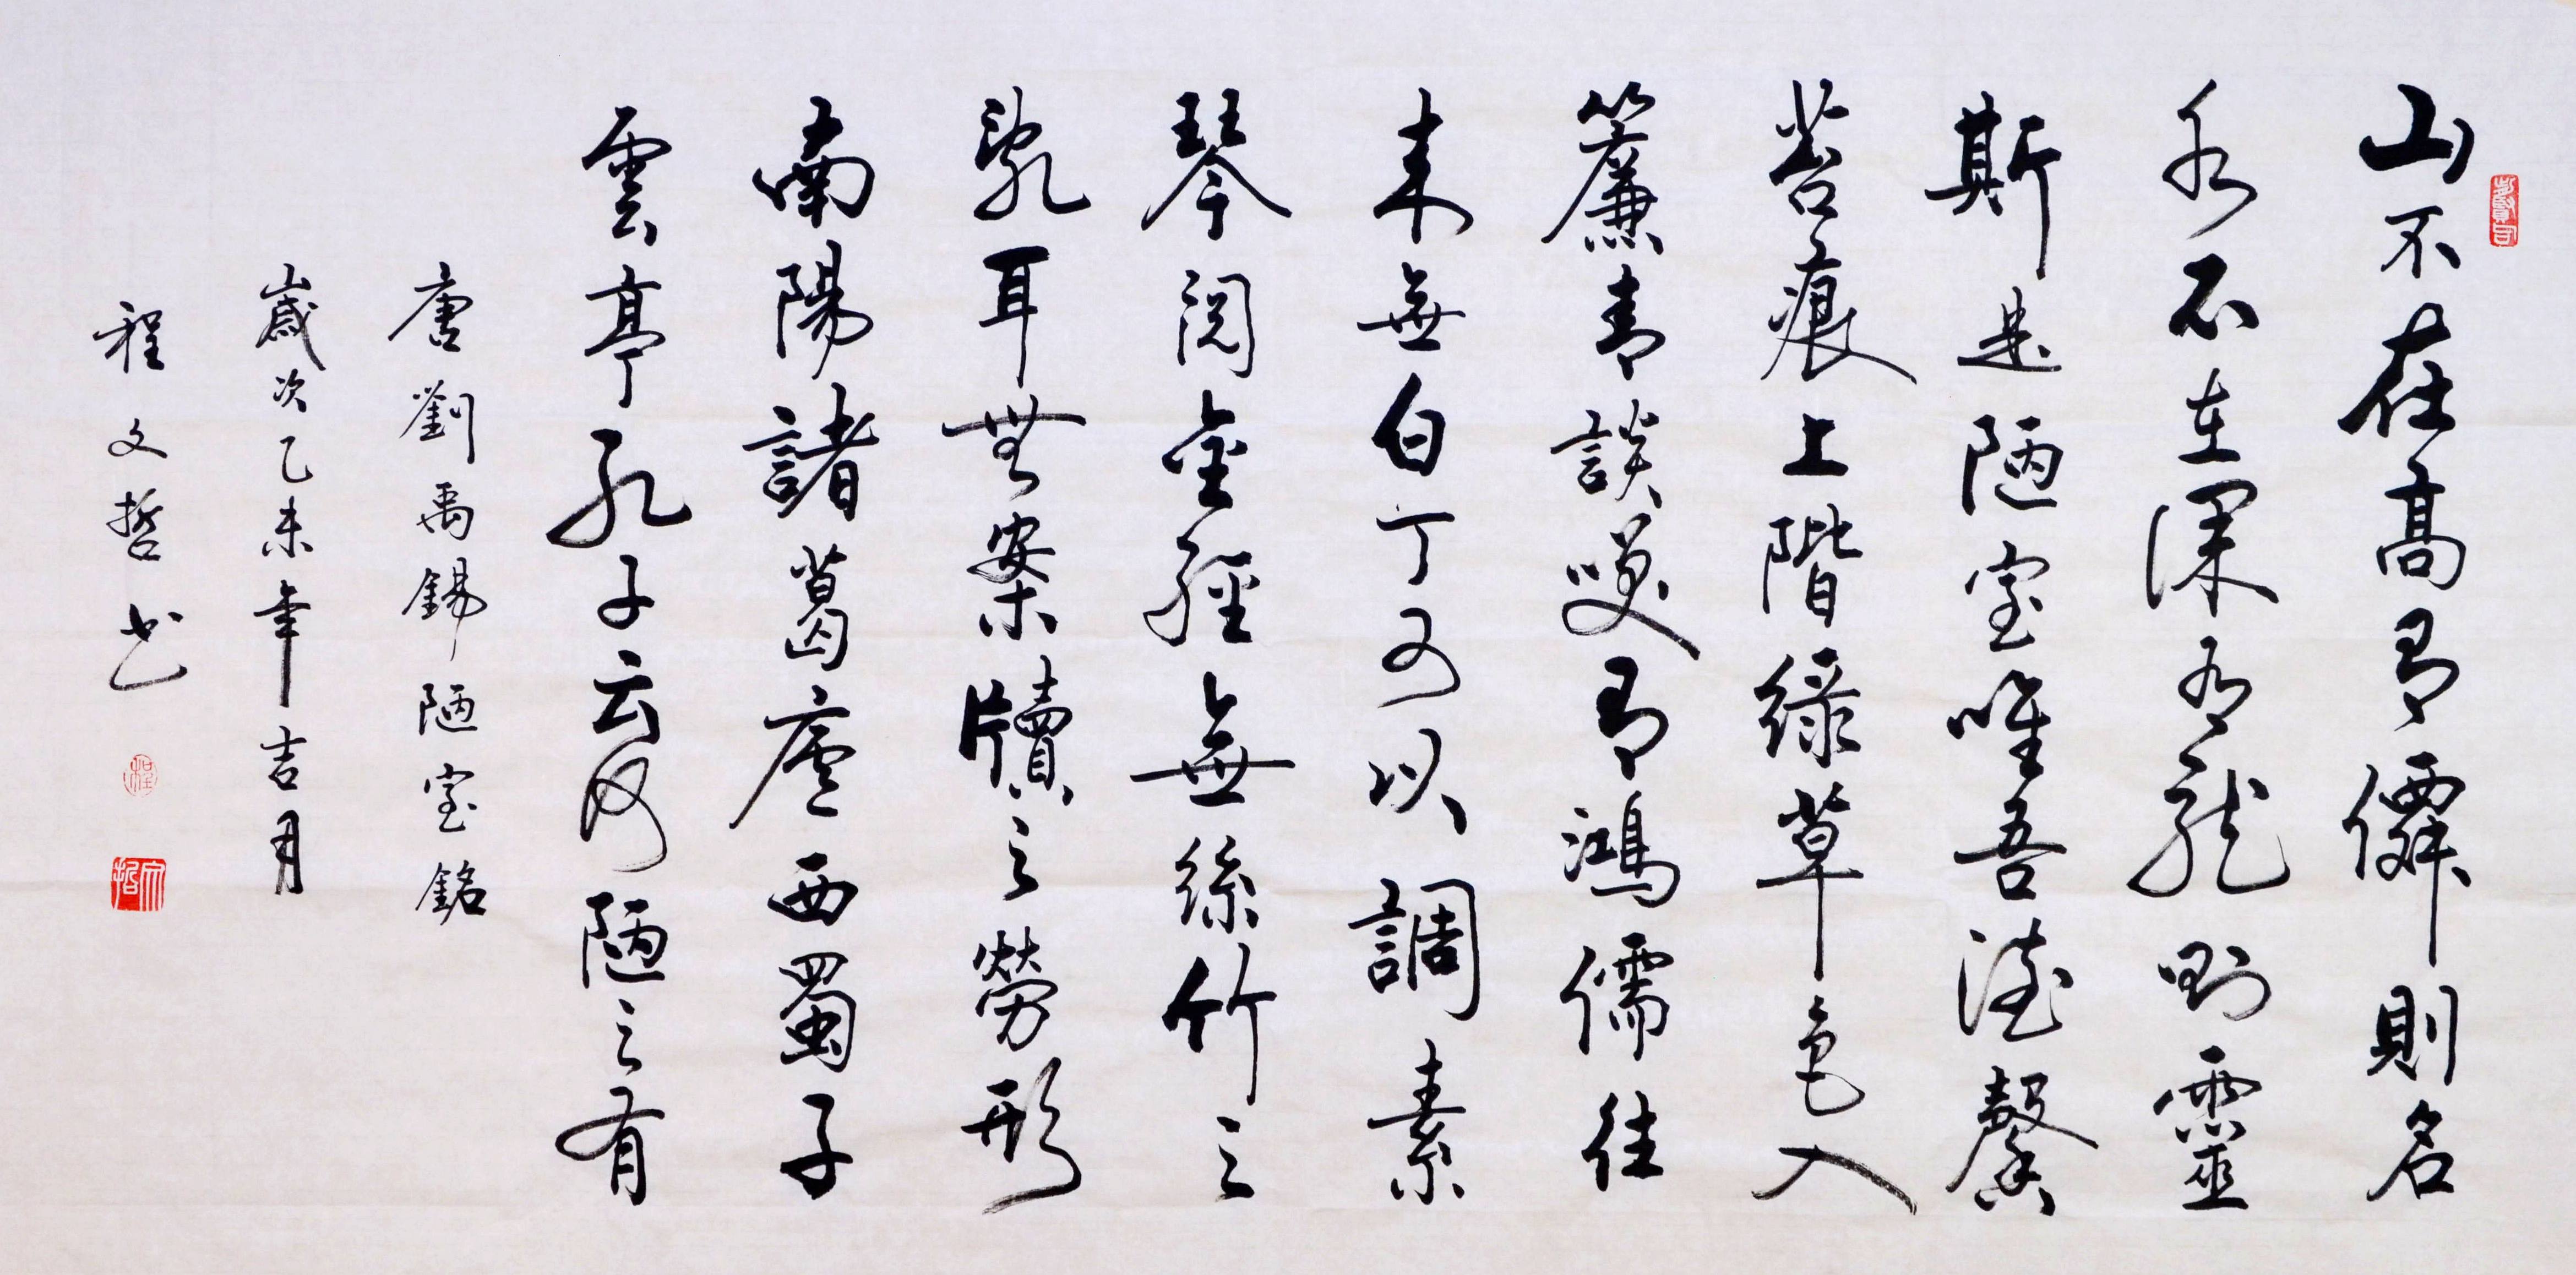 山不在高有僊則名
水不在深有龍則靈
斯是陋室唯吾德馨
苔痕上階綠草色入
簾青談笑有鴻儒往
來無白丁可以調素
琴閱金經無絲竹之
亂耳無案牘之勞形
南陽諸葛廬西蜀子
雲亭孔子云何陋之有
唐劉禹錫陋室銘
歲次乙未年吉月
程文哲书
程
文哲